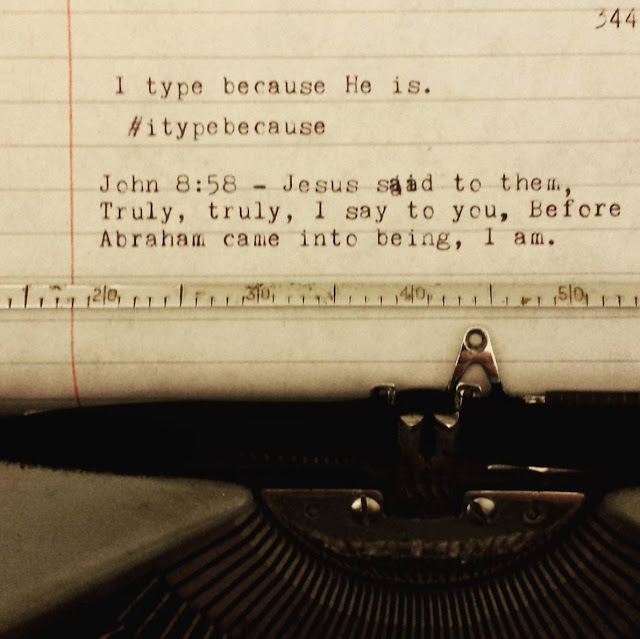 344
I type because He is.
#itypebecause
John 8:58 - Jesus said to them,
Truly, truly, I say to you, Before
Abraham came into being, I am.
20 30 40 50